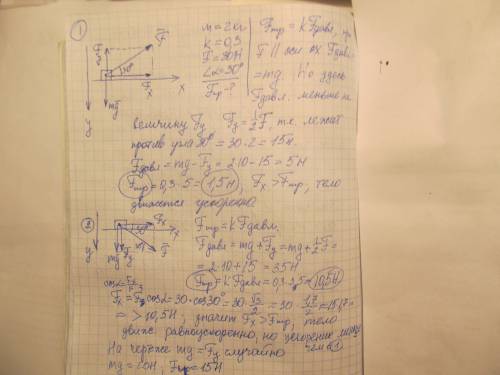 ①
F⃗
Fy
30°
Fx
x
mg
y
m = 2кг
k = 0,3
F = 30Н
∠α = 30°
Fтр - ?
Fтр = kFдавл, при
F || оси ox Fдавл
= mg. Но здесь
Fдавл. меньше на
величину Fy Fy = ½F, т.к. лежат
против угла 30° = 30:2 = 15н.
Fдавл = mg - Fy = 2·10 - 15 = 5Н
Fтр = 0,3·5 = 1,5Н, Fx > Fтр, тело
движется ускоренно
②
Fx
x
30°
mg Fy
F⃗
y
Fтр = kFдавл.
Fдавл = mg + Fy = mg + ½F =
= 2·10 + 15 = 35Н
Fтр = kFдавл = 0,3·35 = 10,5Н
Fx = F cosα = 30·cos30° = 30·
> 10,5Н, значит Fx > Fтр, тело
движ. равноускоренно, но ускорение меньше
чем в ①
На чертеже mg = Fy случайно
mg = 20Н, Fy = 15Н